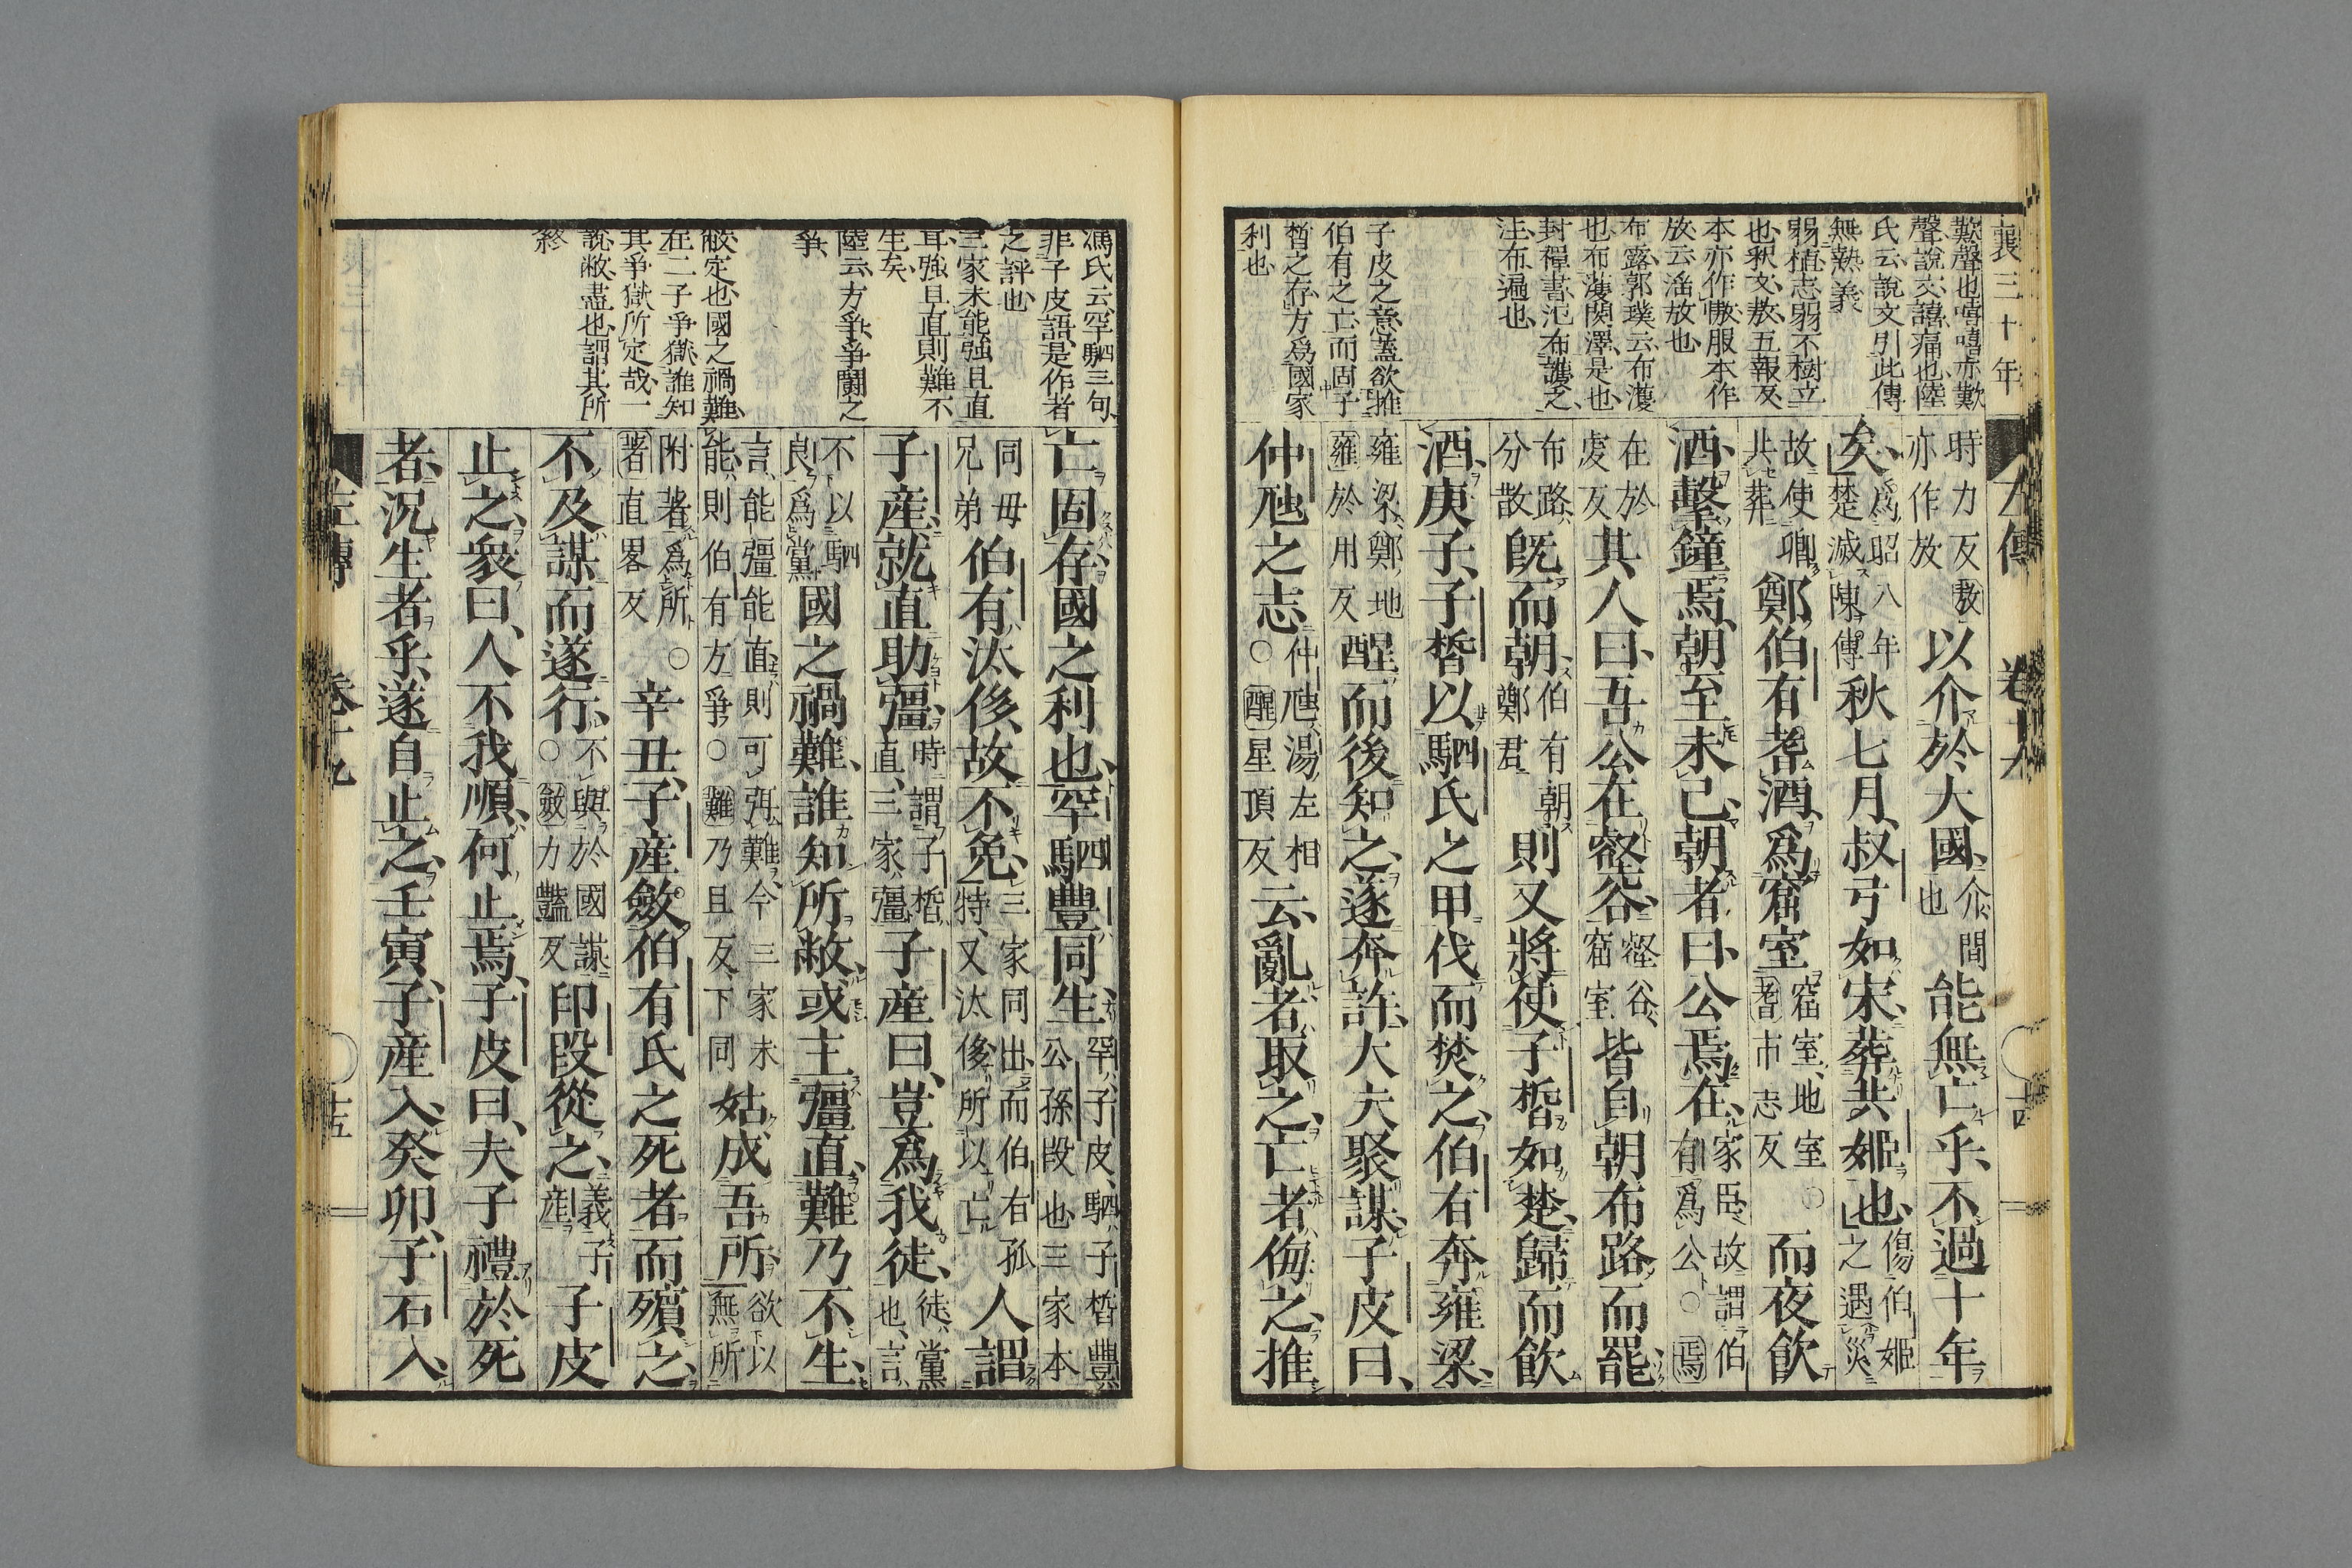 襄三十年
歎聲也嘻嘻亦歎
聲說文譆痛也陸
氏云說文引此傳
無熱義
弱植志弱不樹立
也釈文敖五報反
本亦作傲服本作
放云淫放也
布露郭璞云布濩
也布濩闓澤是也
封禪書氾布護之
注布遍也
子皮之意蓋欲推
伯有之亡而固子
晳之存方爲國家
利也
左傳 卷十九 十四
時力反敖
亦作放
以介於大國
介間
也
能無亡乎不過十年
矣
爲昭八年
楚滅陳傳
秋七月叔弓如宋葬共姬也
傷伯姬
之遇災
故使卿
共葬
鄭伯有耆酒爲窟室
窟室地室○
耆市志反
而夜飲
酒擊鐘焉朝至未已朝者曰公焉在
家臣故謂伯
有爲公○焉
在於
虔反
其人曰吾公在壑谷
壑谷
窟室
皆自朝布路而罷
布路
分散
既而朝
伯有朝
鄭君
則又將使子晳如楚歸而飲
酒庚子子晳以駟氏之甲伐而焚之伯有奔雍梁
雍梁鄭地
雍於用反
醒而後知之遂奔許大夫聚謀子皮曰
仲虺之志
仲虺湯左相
○醒星頂反
云亂者取之亡者侮之推
馮氏云罕駟三句
非子皮語是作者
之評也
三家未能強且直
耳強且直則難不
生矣
陸云方爭爭鬪之
爭
敝定也國之禍難
在二子爭獄誰知
其爭獄所定哉一
說敝盡也謂其所
終
亡固存國之利也罕駟豐同生
罕子皮駟子晳豐
公孫段也三家本
同母
兄弟
伯有汰侈故不免
三家同出而伯有孤
特又汰侈所以亡
人謂
子產就直助彊
時謂子晳
直三家彊
子產曰豈爲我徒
徒黨
也言
不以駟
良爲黨
國之禍難誰知所敝或主彊直難乃不生
言能彊能直則可弭難今三家未
能則伯有方爭○難乃且反下同
姑成吾所
欲以
無所
附著爲所○
著直畧反
辛丑子產斂伯有氏之死者而殯之
不及謀而遂行
不與於國謀
○斂力豔反
印段從之
義子
產
子皮
止之衆曰人不我順何止焉子皮曰夫子禮於死
者況生者乎遂自止之壬寅子產入癸卯子石入
左傳 卷十九 十五